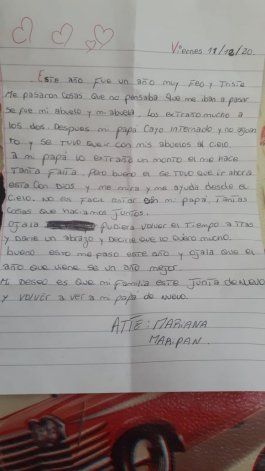 Viernes 11/12/20.
Este año fue un año muy Feo y Triste
Me pasaron cosas que no pensaba que me iban a pasar
se fue mi abuelo y mi abuela. Los extraño mucho a
los dos. Despues mi papá cayo internado y no
y se tuvo que ir con mis abuelos al cielo.
A mi papá lo extraño un monton el me hace
Tanta Falta. Pero bueno el se tuvo que ir ahora
esta con Dios y me mira y me ayuda desde el
cielo. No es facil estar sin mi papá, Tantas
cosas que haciamos juntos.
Ojala pudiera volver el tiempo atras
y darle un abrazo y decirle que lo quiero mucho.
bueno esto me paso este año y ojala que el
año que viene se un año mejor.
Mi deseo es que mi familia este junta de nuevo
y volver a ver a mi papá de nuevo.
ATTE: MARIANA
MARIPAN.